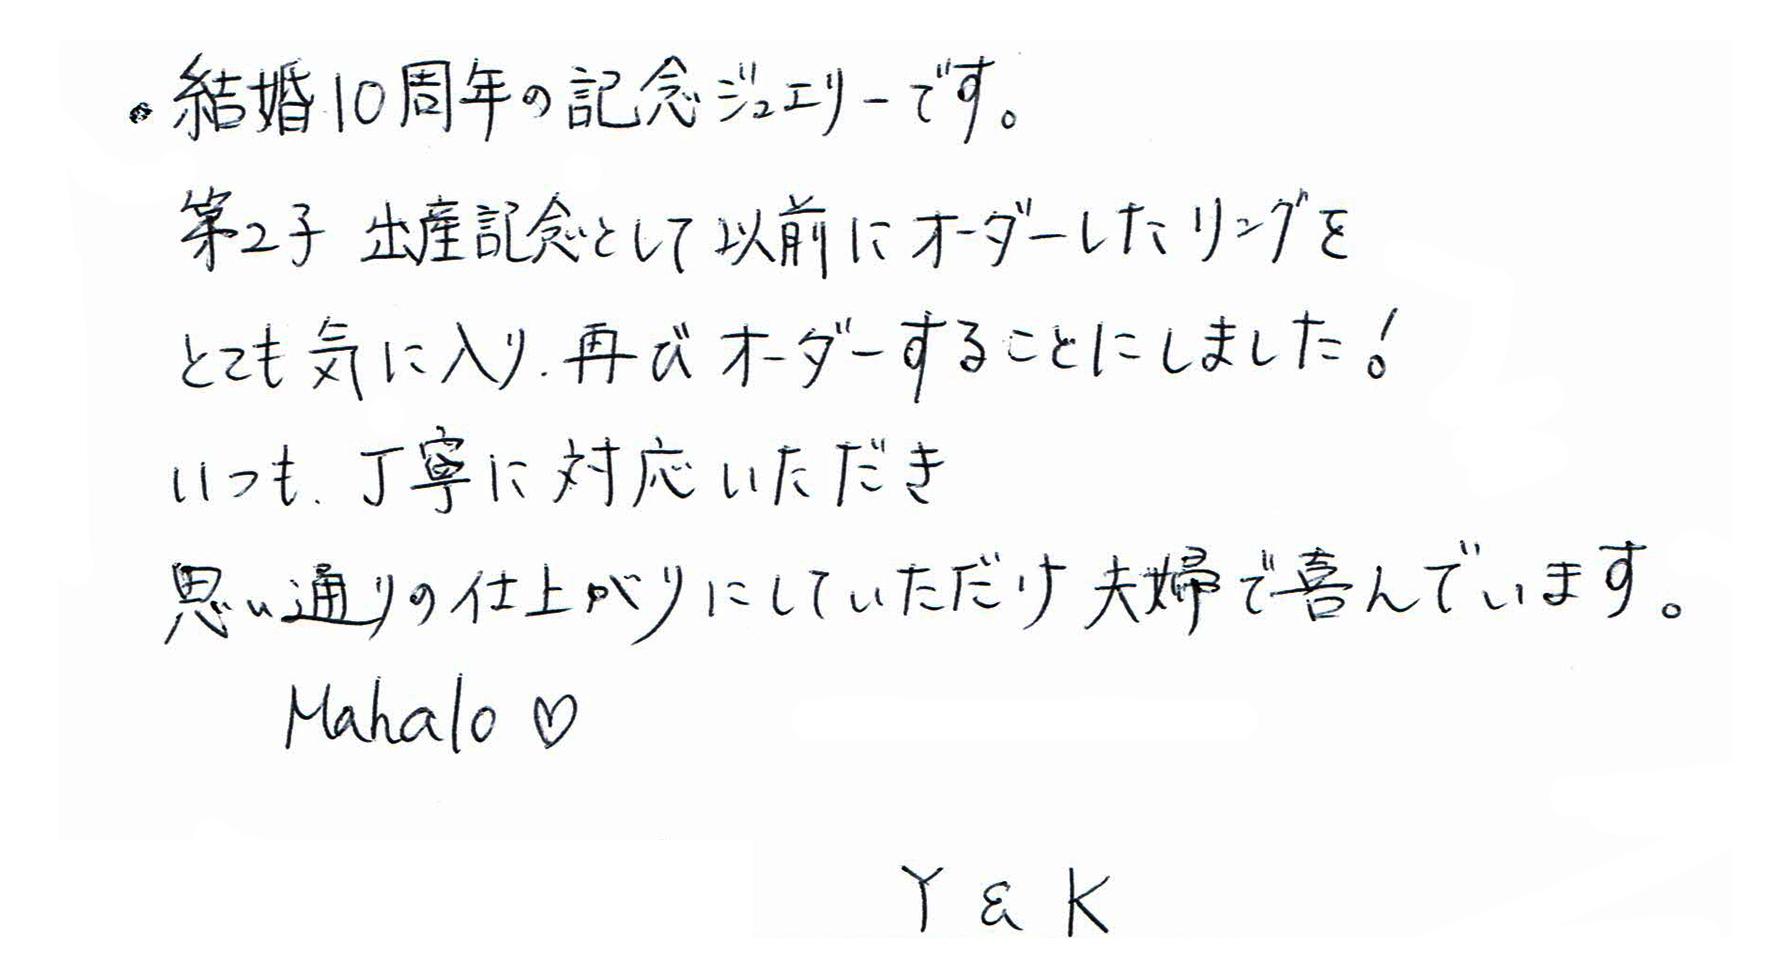 ・結婚10周年の記念ジュエリーです。
第2子 出産記念として以前にオーダーしたリングを
とても気に入り、再びオーダーすることにしました!
いつも、丁寧に対応いただき
思い通りの仕上がりにしていただけ夫婦で喜んでいます。
Mahalo♡
Y & K